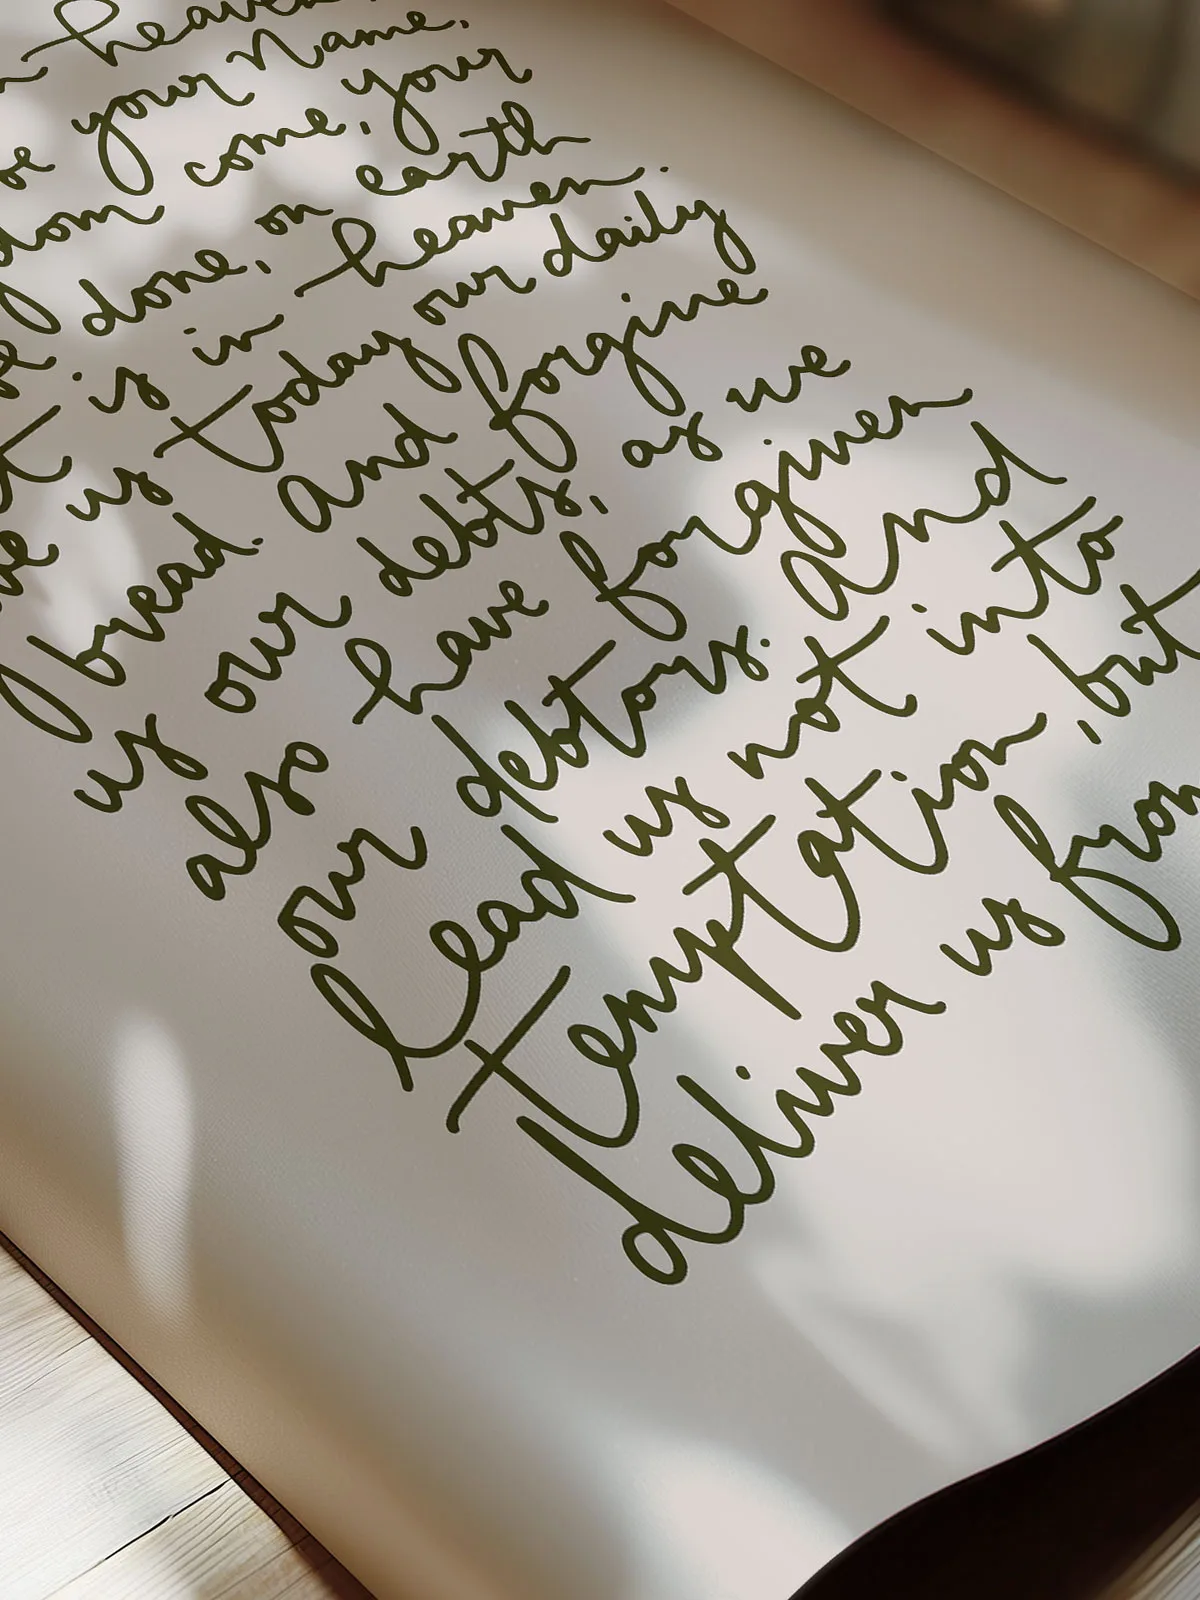 heaven
your Name.
come, your
done, on earth
is in heaven.
us today our daily
bread. And forgive
us our debts, as we
also have forgiven
our debtors. And
lead us not into
temptation, but
deliver us from